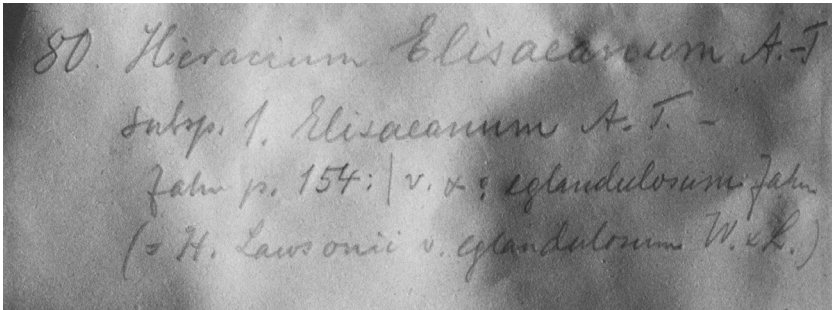 80. Hieracium Elisaeanum A.-T
subsp. 1. Elisaeanum A.-T. -
Zahn p. 154: | v. α: eglandulosum Zahn
(= H. Lawsonii v. eglandulosum W. & L.)